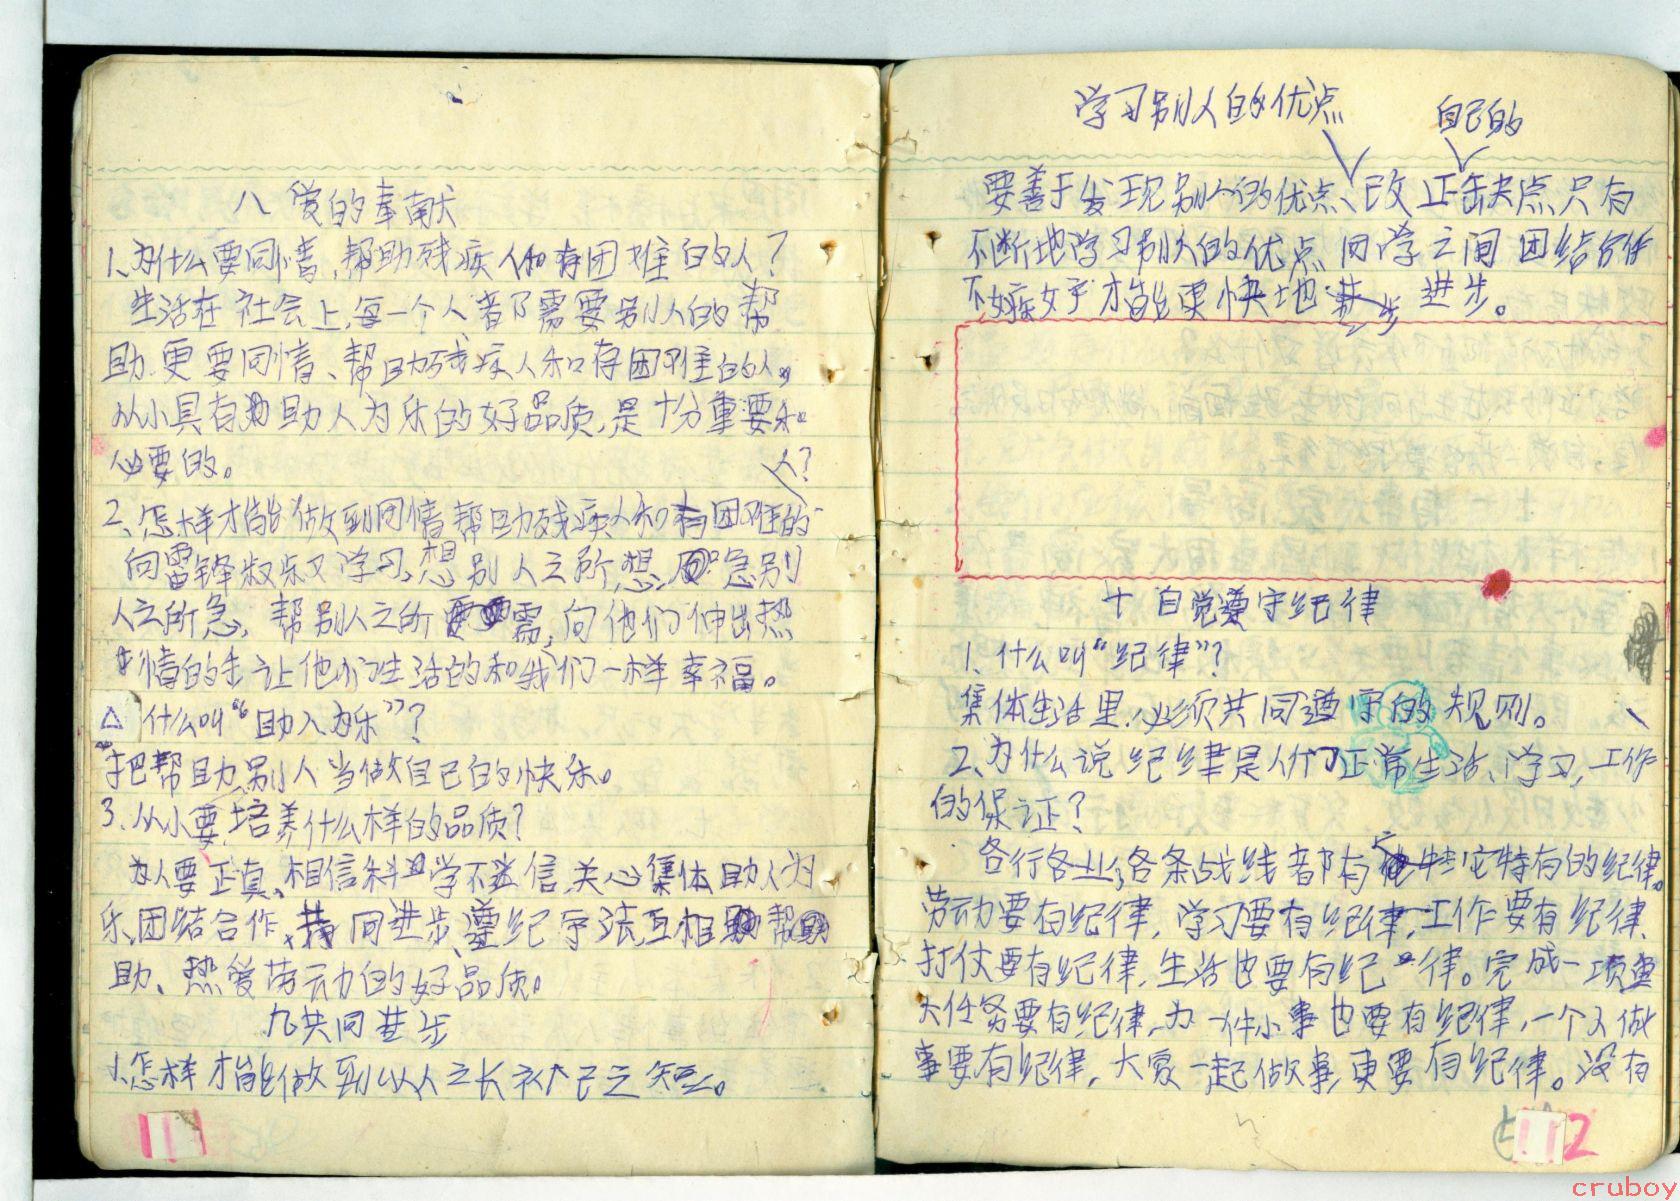 八 爱的奉献
1、为什么要同情、帮助残疾人和有困难的人？
生活在社会上,每一个人、都需要别人的帮
助.更要同情、帮助残疾人和有困难的人。
从小具有助人为乐的好品质,是十分重要和
必要的。
人？
2、怎样才能做到同情帮助残疾人和有困难的
向雷锋叔叔学习,想别人之所想,急别
人之所急,帮别人之所需,向他们伸出热
情的手让他们生活的和我们一样幸福。
△ 什么叫“助人为乐”？
把帮助别人当做自己的快乐。
3、从小要培养什么样的品质？
为人要正真、相信科学不迷信、关心集体、助人为
乐、团结合作、共同进步、遵纪守法、互相帮
助、热爱劳动的好品质。
九共同进步
1、怎样才能做到以人之长补己之短。
学习别人的优点
自己的
要善于发现别人的优点、改正缺点只有
不断地学习别人的优点 同学之间 团结合作
不嫉妒才能更快地 进步。
十 自觉遵守纪律
1、什么叫“纪律”？
集体生活里,必须共同遵守的规则。
2、为什么说纪律是人们正常生活、学习,工作
的保证？
各行各业,各条战线都有它特有的纪律。
劳动要有纪律,学习要有纪律,工作要有纪律、
打仗要有纪律,生活也要有纪律。完成一项重
大任务要有纪律,办一件小事也要有纪律,一个人做
事要有纪律,大家一起做事,更要有纪律。没有
11
112
cruboy